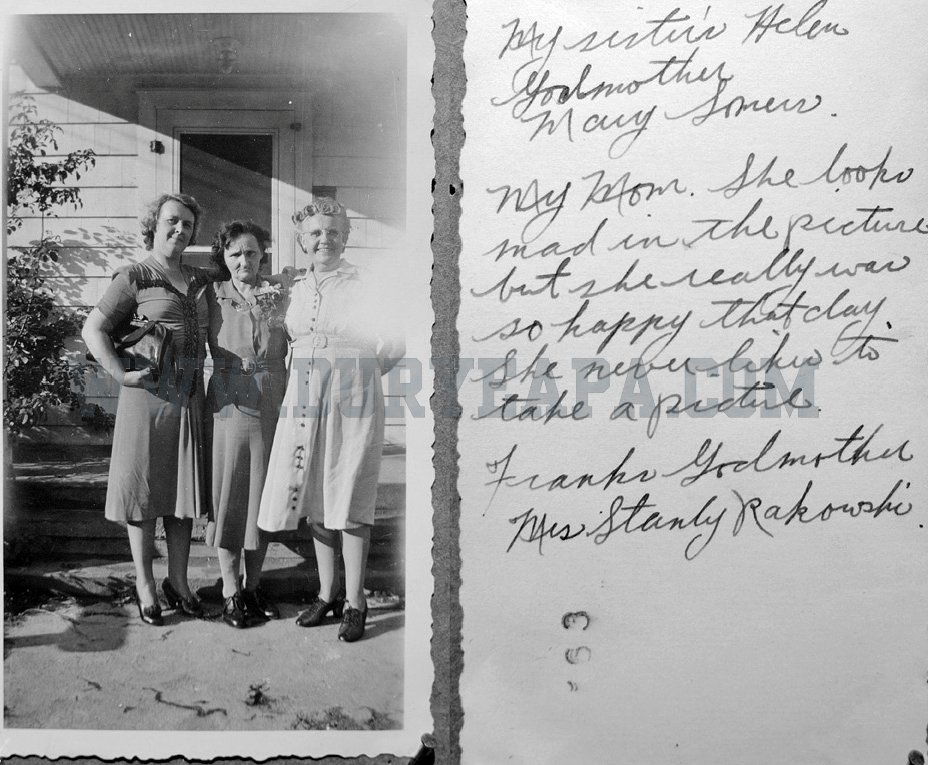 My sister's Helen
Godmother
Mary Somers.
My Mom. She looks
mad in the picture
but she really was
so happy that day.
She never likes to
take a picture.
Franks Godmother
Mrs Stanly Rakowski.
53
WWW.DORYPAPA.COM